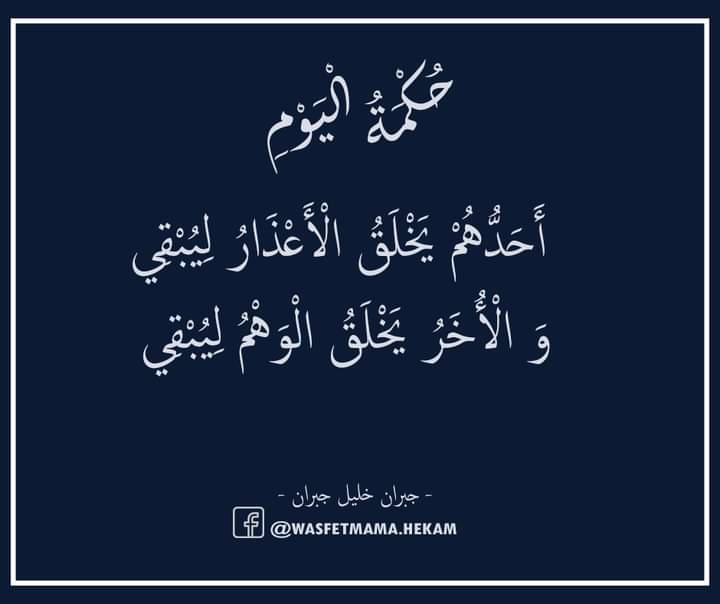 حُكْمَةُ الْيَوْمِ
أَحَدُّهُمْ يَخْلَقُ الْأَعْذَارُ لِيُبْقِي
وَ الْأُخَرُ يَخْلَقُ الْوَهْمُ لِيُبْقِي
- جبران خليل جبران -
@WASFETMAMA.HEKAM